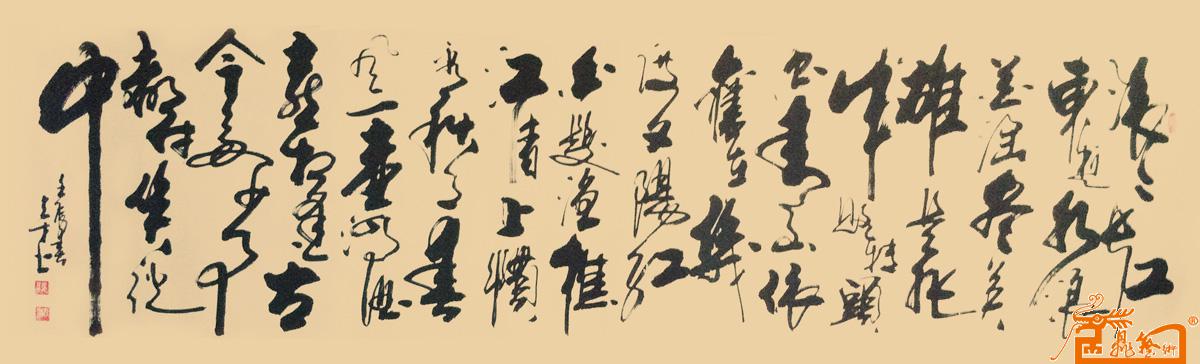 滚滚长江
東逝水浪
花淘尽英
雄是非
成敗轉頭
空青山依
舊在幾
度夕陽红
白髮漁樵
江渚上慣
看秋月春
風一壶濁酒
喜相逢古
今多少事
都付笑谈
中
壬辰春